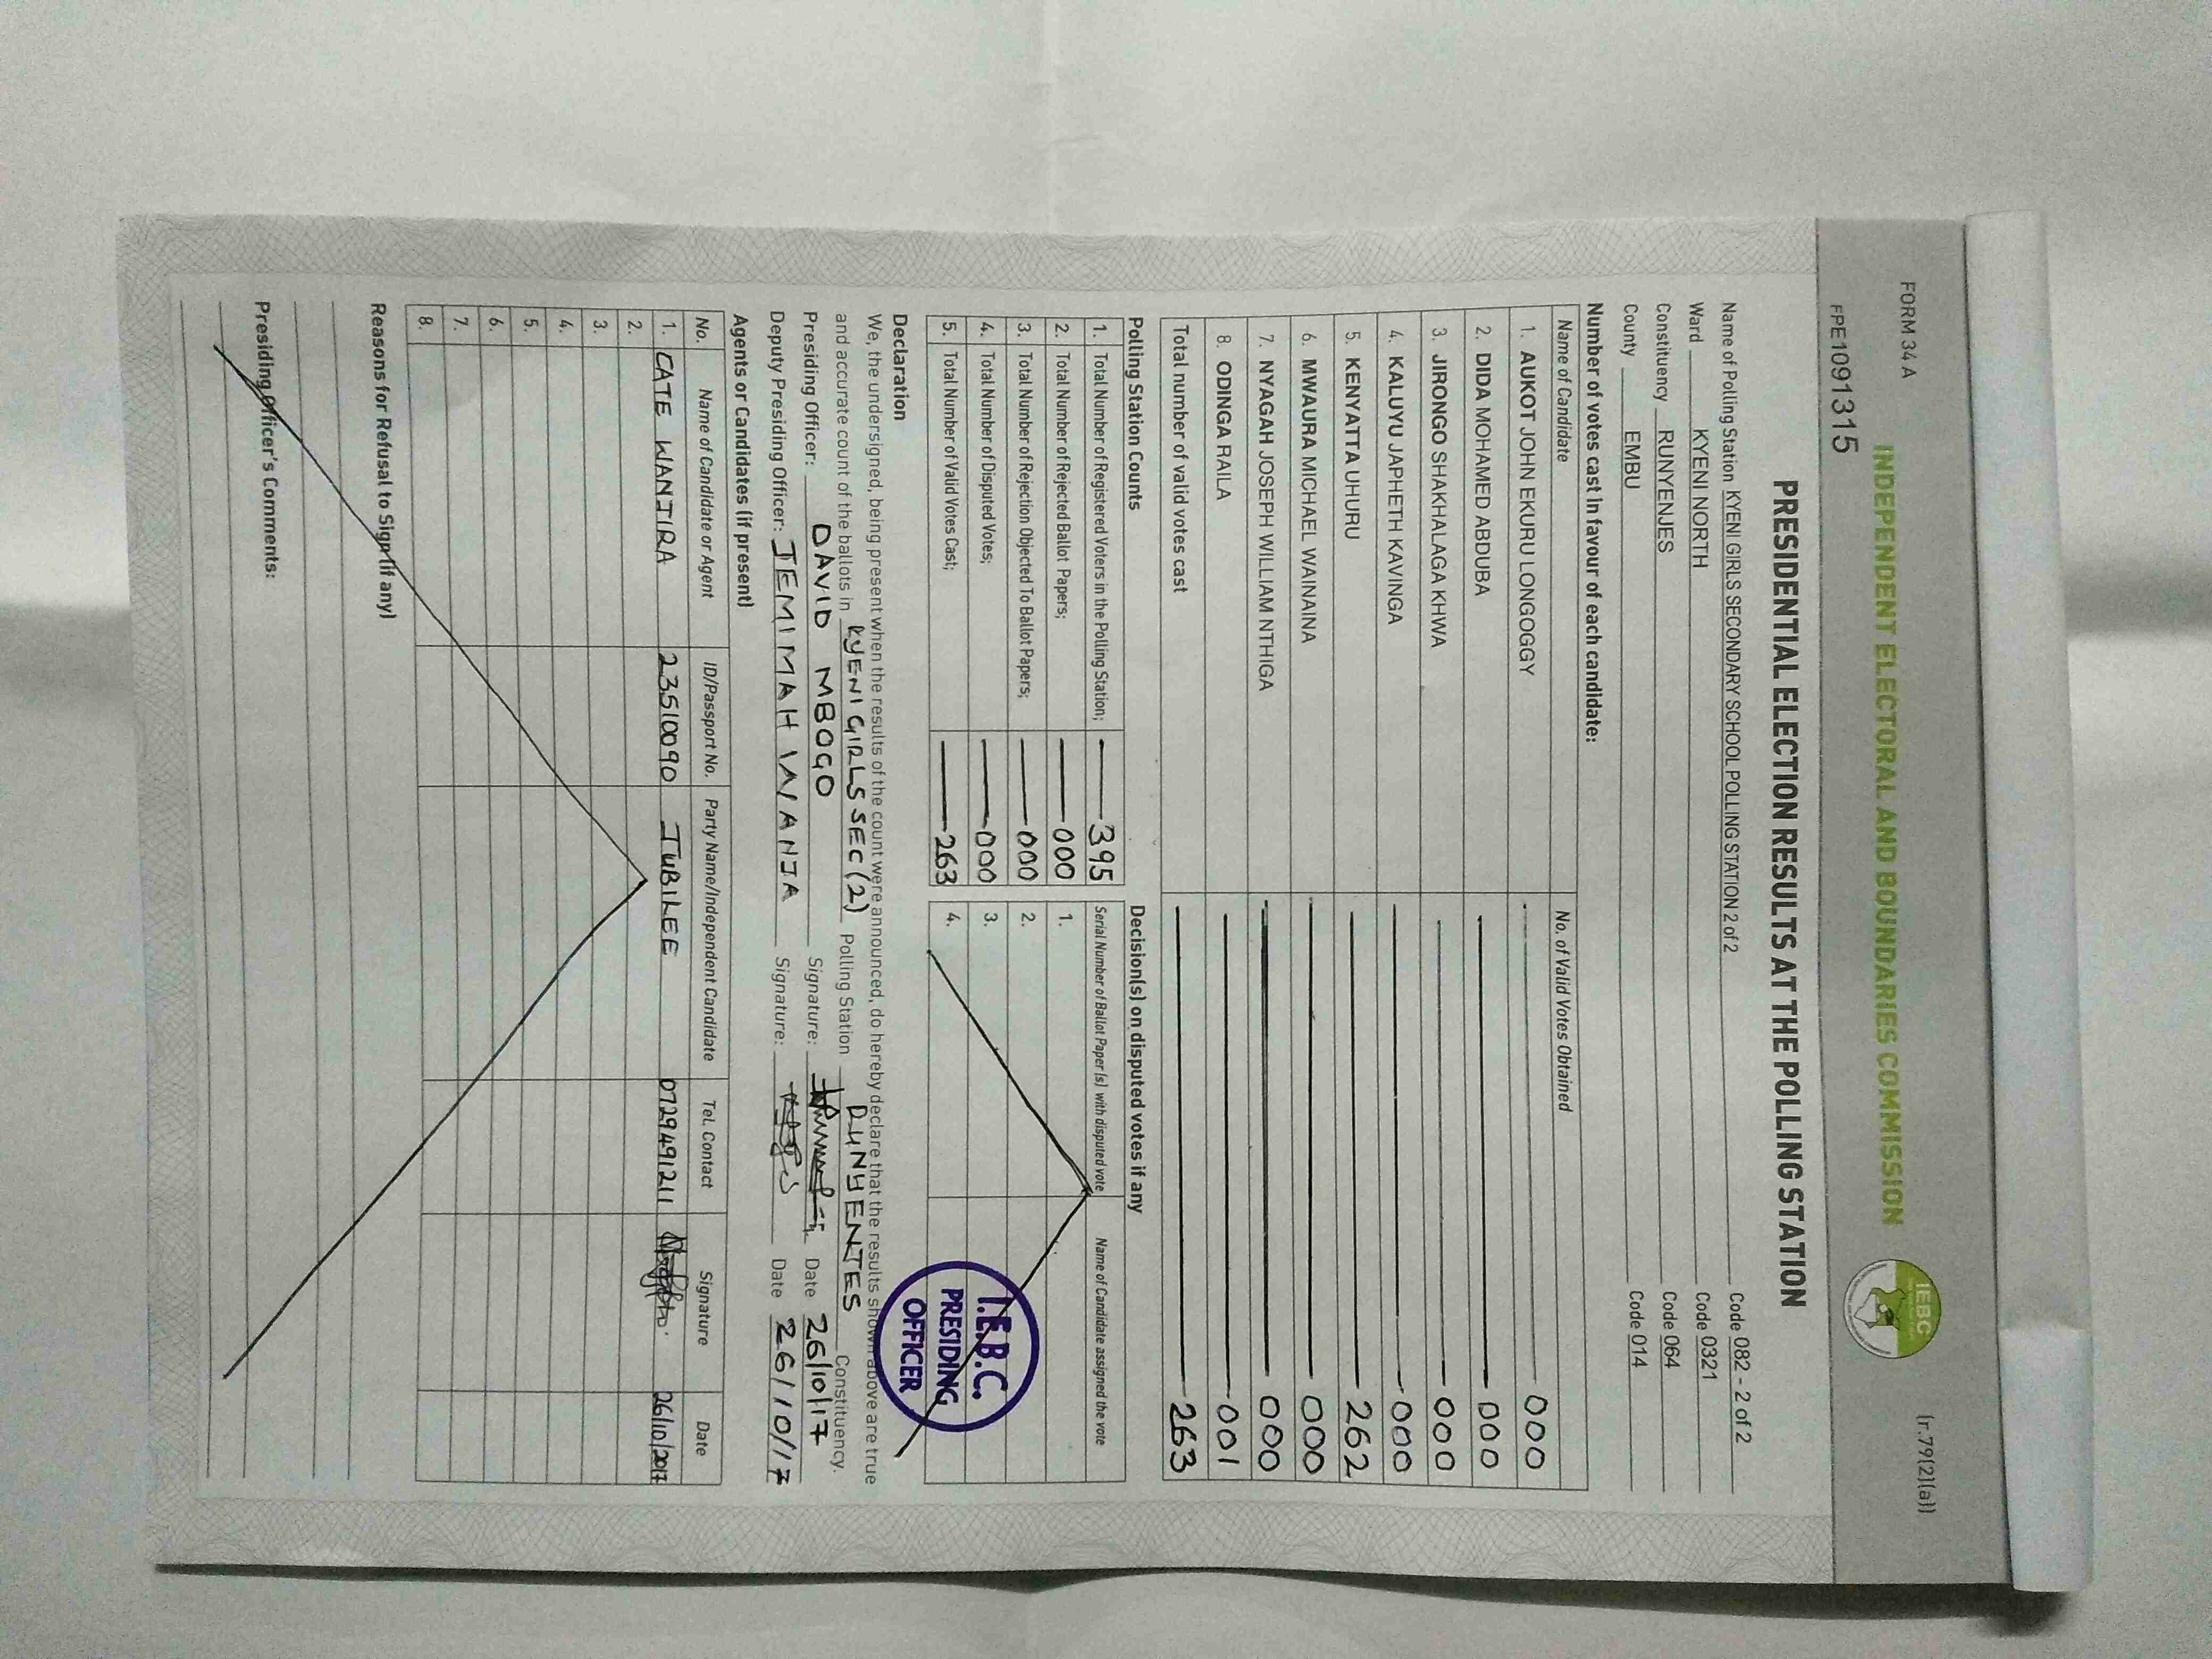 FORM 34 A
(r.79(2)(a))
INDEPENDENT ELECTORAL AND BOUNDARIES COMMISSION
IEBC
FPE1091315
PRESIDENTIAL ELECTION RESULTS AT THE POLLING STATION
Name of Polling Station KYENI GIRLS SECONDARY SCHOOL POLLING STATION 2 of 2 Code 082 - 2 of 2
Ward KYENI NORTH Code 0321
Constituency RUNYENJES Code 064
County EMBU Code 014
Number of votes cast in favour of each candidate:
Name of Candidate No. of Valid Votes Obtained
1. AUKOT JOHN EKURU LONGOGGY 000
2. DIDA MOHAMED ABDUBA 000
3. JIRONGO SHAKHALAGA KHWA 000
4. KALUYU JAPHETH KAVINGA 000
5. KENYATTA UHURU 262
6. MWAURA MICHAEL WAINAINA 000
7. NYAGAH JOSEPH WILLIAM NTHIGA 000
8. ODINGA RAILA 001
Total number of valid votes cast 263
Polling Station Counts
1. Total Number of Registered Voters in the Polling Station; 395
2. Total Number of Rejected Ballot Papers; 000
3. Total Number of Rejection Objected To Ballot Papers; 000
4. Total Number of Disputed Votes; 000
5. Total Number of Valid Votes Cast; 263
Decision(s) on disputed votes if any
Serial Number of Ballot Paper (s) with disputed vote Name of Candidate assigned the vote
1.
2.
3.
4.
I.E.B.C.
PRESIDING
OFFICER
Declaration
We, the undersigned, being present when the results of the count were announced, do hereby declare that the results shown above are true
and accurate count of the ballots in KYENI GIRLS SEC (2) Polling Station RUNYENJES Constituency.
Presiding Officer: DAVID MBOGO Signature: Date 26/10/17
Deputy Presiding Officer: JEMIMAH WANJA Signature: Date 26/10/17
Agents or Candidates (if present)
No. Name of Candidate or Agent ID/Passport No. Party Name/Independent Candidate Tel. Contact Signature Date
1. CATE WANJIRA 23510090 JUBILEE 0729491211 26/10/2017
2.
3.
4.
5.
6.
7.
8.
Reasons for Refusal to Sign (if any)
Presiding Officer's Comments: